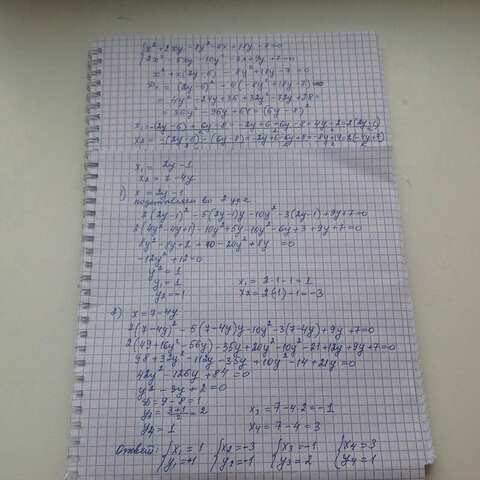 x² + 2xy - 8y² - 6x + 18y - 7 = 0
2x² - 5xy - 10y² - 3x + 9y + 7 = 0
x² + x(2y - 6) - 8y² + 18y - 7 = 0
= (2y - 6)² - 4(-8y² + 18y - 7) =
= 4y² - 24y + 36 + 32y² - 72y + 28 =
36y² - 96y + 64 = (6y - 8)²
x₁ = 2y - 1
x₂ = 7 - 4y
1) x = 2y - 1
подставляем во 2 ур-е
2(2y-1)² - 5(2y-1)y - 10y² - 3(2y-1) + 9y + 7 = 0
2(4y² - 4y + 1) - 10y² + 5y - 10y² - 6y + 3 + 9y + 7 = 0
8y² - 8y + 2 + 10 - 20y² + 8y = 0
-12y² + 12 = 0
y² = 1
y₁ = 1 x₁ = 2·1 - 1 = 1
y₂ = -1 x₂ = 2(-1) - 1 = -3
2) x = 7 - 4y
2(7-4y)² - 5(7-4y)y - 10y² - 3(7-4y) + 9y + 7 = 0
2(49 + 16y² - 56y) - 35y + 20y² - 10y² - 21 + 12y + 9y + 7 = 0
98 + 32y² - 112y - 35y + 10y² - 14 + 21y = 0
42y² - 126y + 84 = 0
y² - 3y + 2 = 0
D = 9 - 8 = 1
y₃ = (3+1)/2 = 2 x₃ = 7 - 4·2 = -1
y₄ = 1 x₄ = 7 - 4 = 3
Ответ: {x₁ = 1 {x₂ = -3 {x₃ = -1 {x₄ = 3
{y₁ = +1 {y₂ = -1 {y₃ = 2 {y₄ = 1